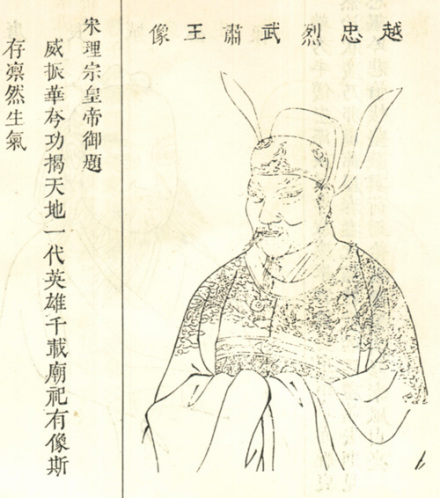 越忠烈武肅王像
宋理宗皇帝御題
威振華夸功揭天地一代英雄千載廟祀有像斯
存凛然生氣